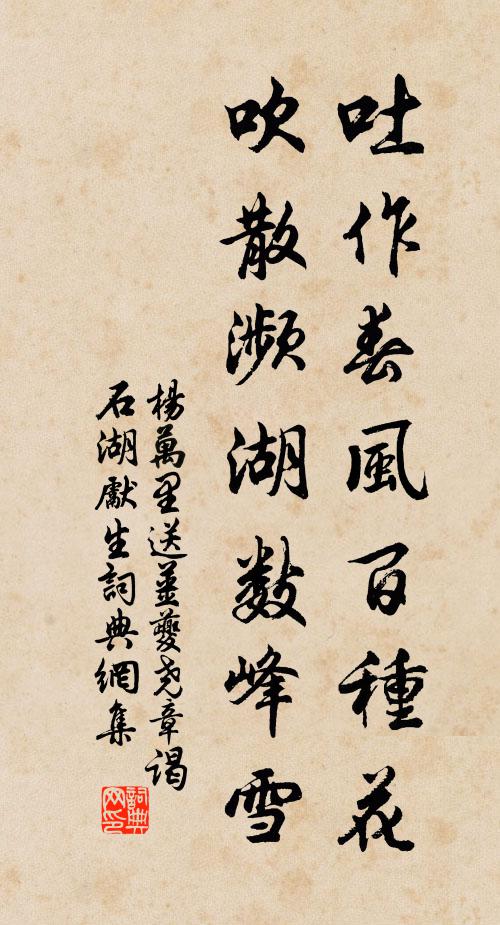 吐作春風百種花
吹散瀕湖數峰雪
楊萬里送姜夔堯章謁
石湖獻生詞典網集
詞典
网印